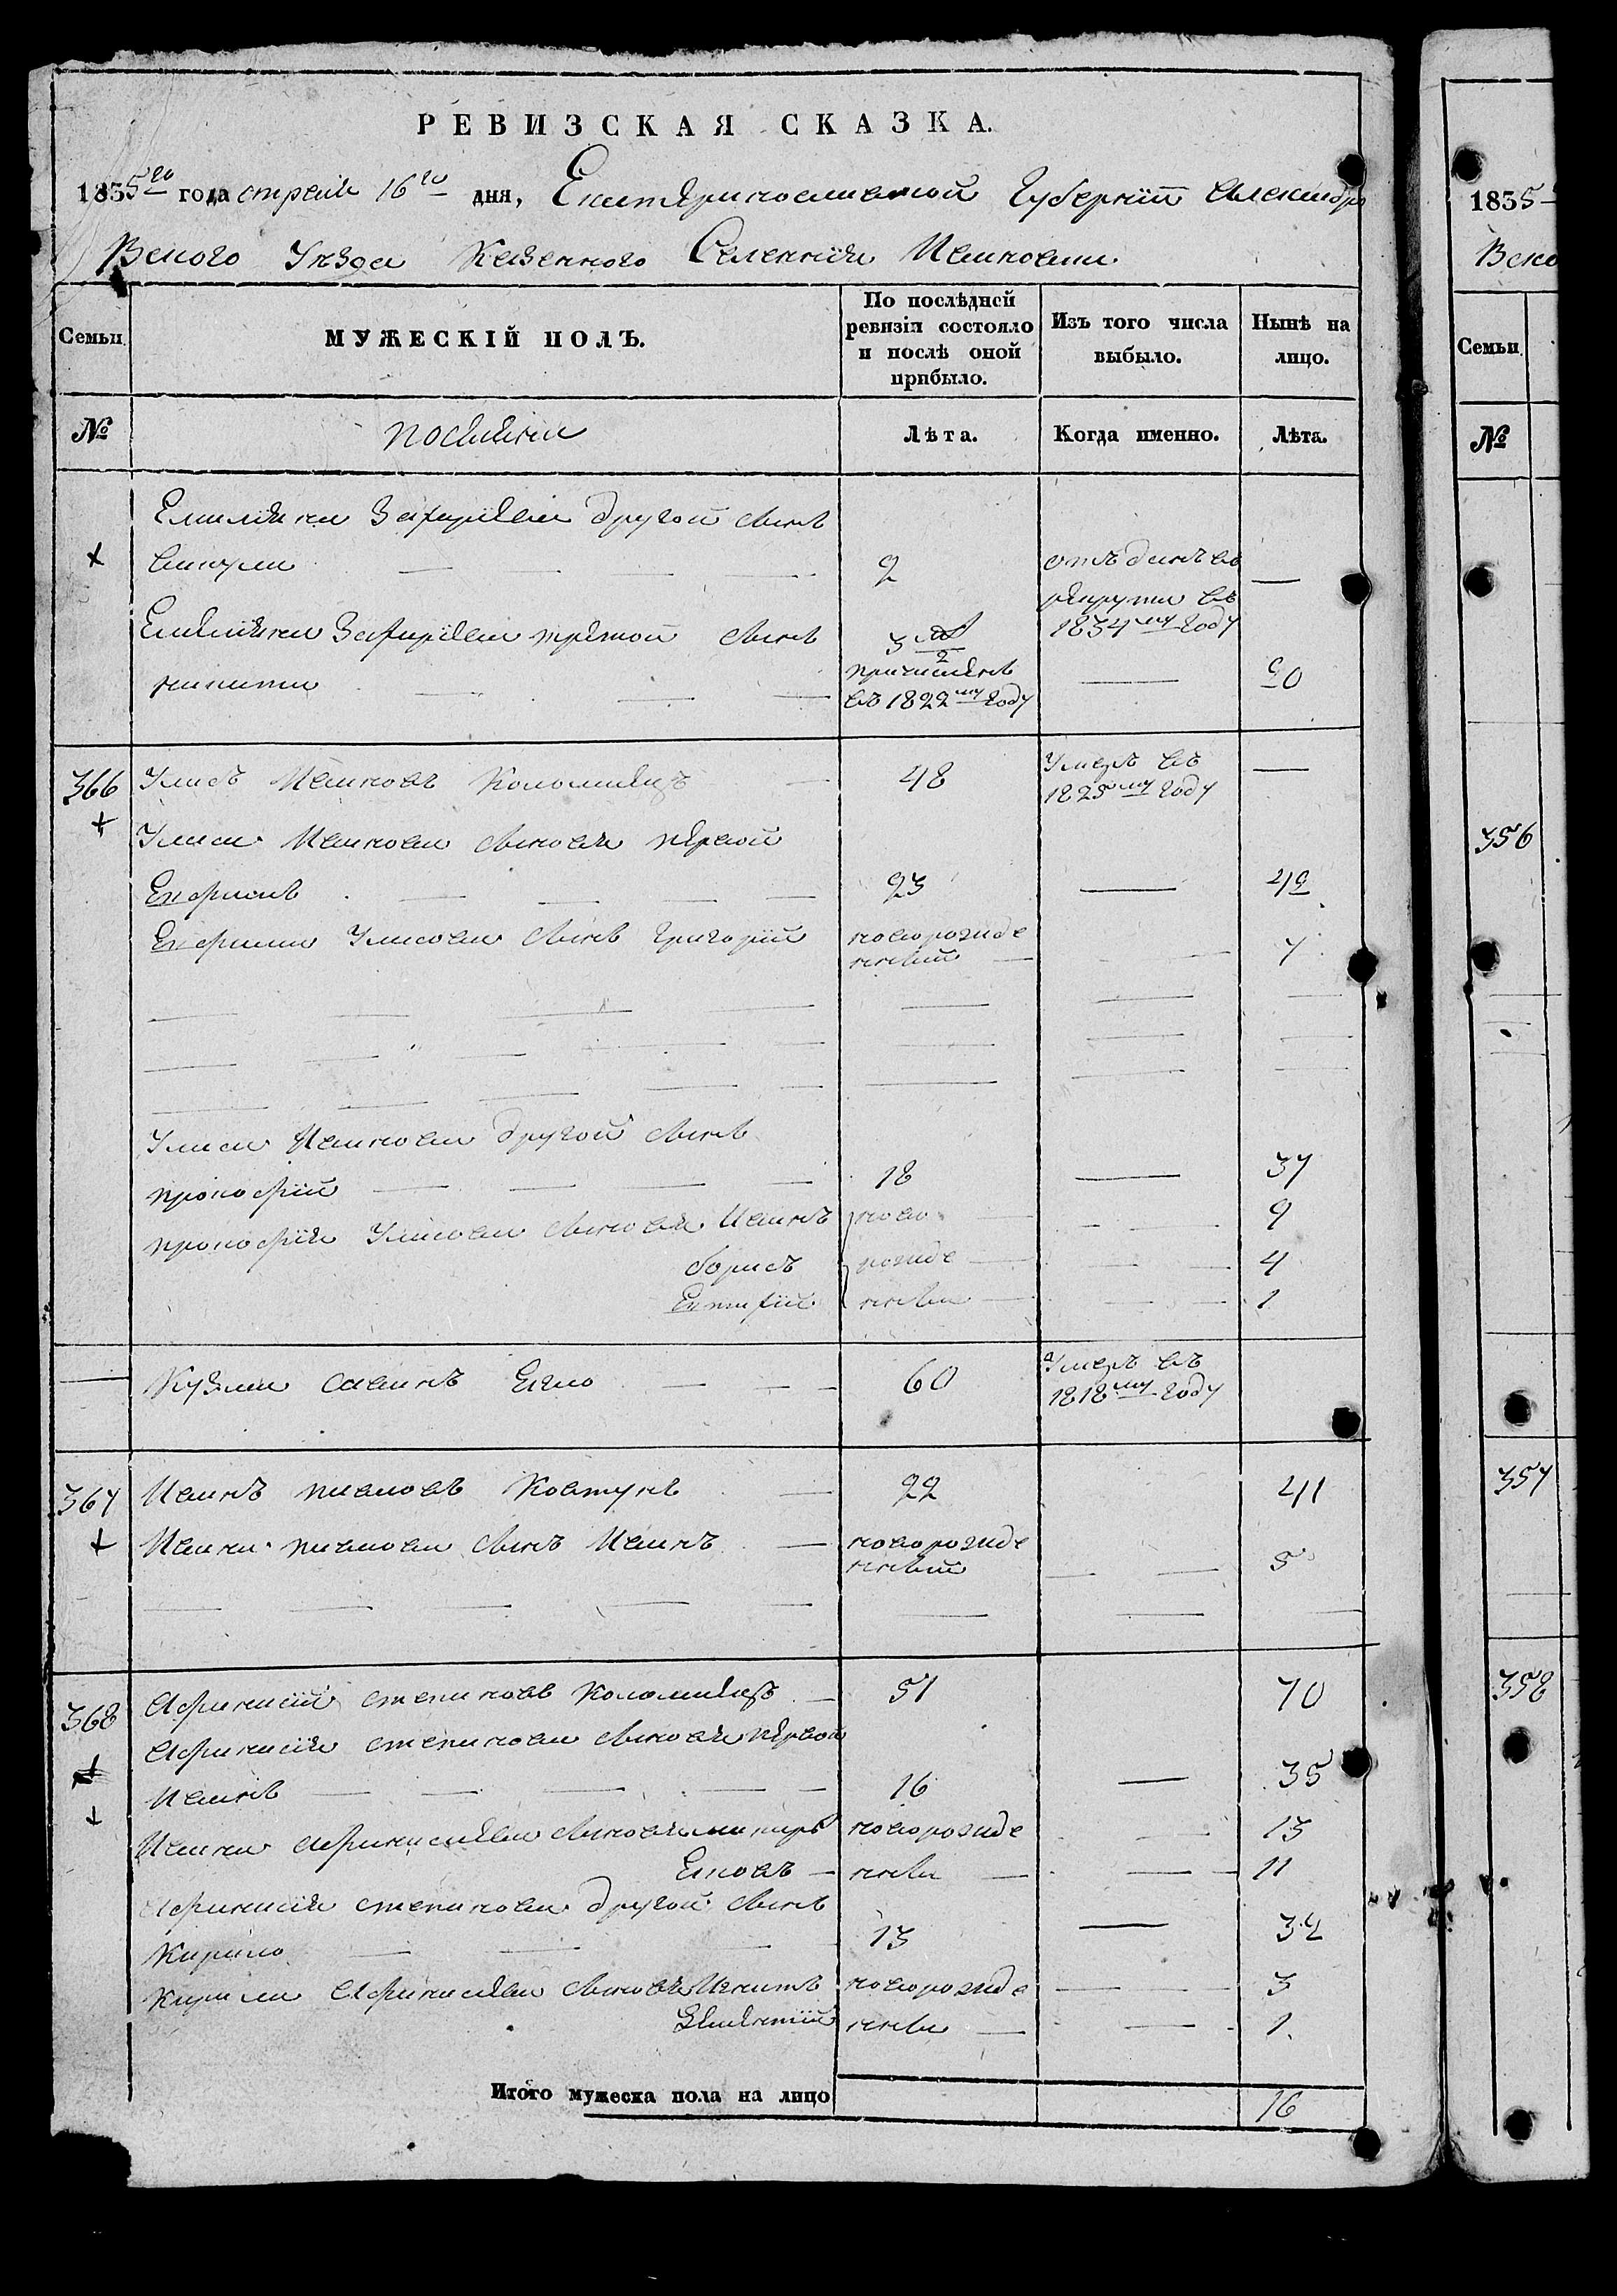 РЕВИЗСКАЯ СКАЗКА.
1835го года апреля 16го дня, Екатеринославской Губернии Александро
Вского Уезда Казенного Селения Ивановки
Семьи
МУЖЕСКІЙ ПОЛЪ.
По послѣдней ревизіи состояло и послѣ оной прибыло.
Изъ того числа выбыло.
Нынѣ на лицо.
№
поселяни
Лѣта.
Когда именно.
Лѣта.
другой сынъ
2
отъданъ въ
рекруты въ
1834му году
третой сынъ
3
2
причисленъ
въ 1822му году
никита
20
366 Уласъ Ивановъ Коломиецъ 48 Умеръ въ
1825му году
Уласа Иванова сыновья первой
Ефримъ 23 42
Ефрима Уласова сынъ Григорий новорожде
нный 7
Уласа Иванова другой сынъ
прокофий 18 37
прокофия Уласова сыновья Иванъ ново 9
борисъ рожде 4
нны 1
Кузма Савинъ 60 Умеръ въ
1818му году
367 Иванъ Ковтунъ 22 41
Ивана сынъ Иванъ новорожде
нный 5
368 Афанасий степановъ Коломиецъ 51 70
Афанасия степанова сыновья первой
Иванъ 16 35
Ивана Афанасиева сыновья новорожде 13
нны 11
Афанасия степанова другой сынъ
Кирило 13 32
Кирила Афанасиева сыновья Игнатъ новорожде 3
нны 1
Итого мужеска пола на лицо 16
1835
Вско
Семьи
№
356
357
358